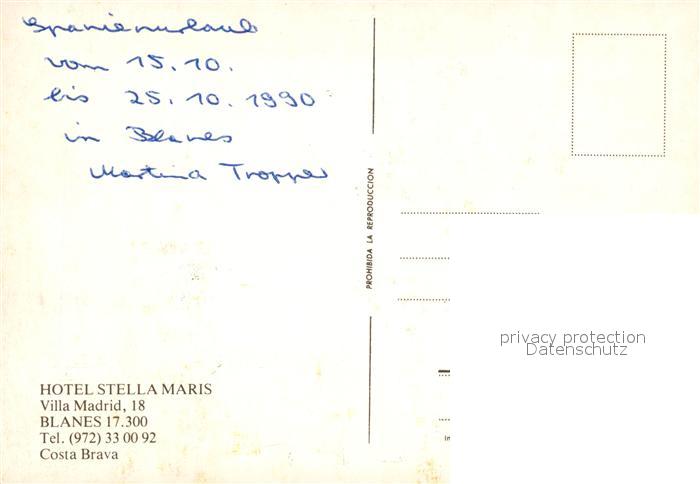 Spanienurlaub
vom 15.10.
bis 25.10.1990
in Blanes
Martina Tropper
PROHIBIDA LA REPRODUCCION
privacy protection
Datenschutz
HOTEL STELLA MARIS
Villa Madrid, 18
BLANES 17.300
Tel. (972) 33 00 92
Costa Brava